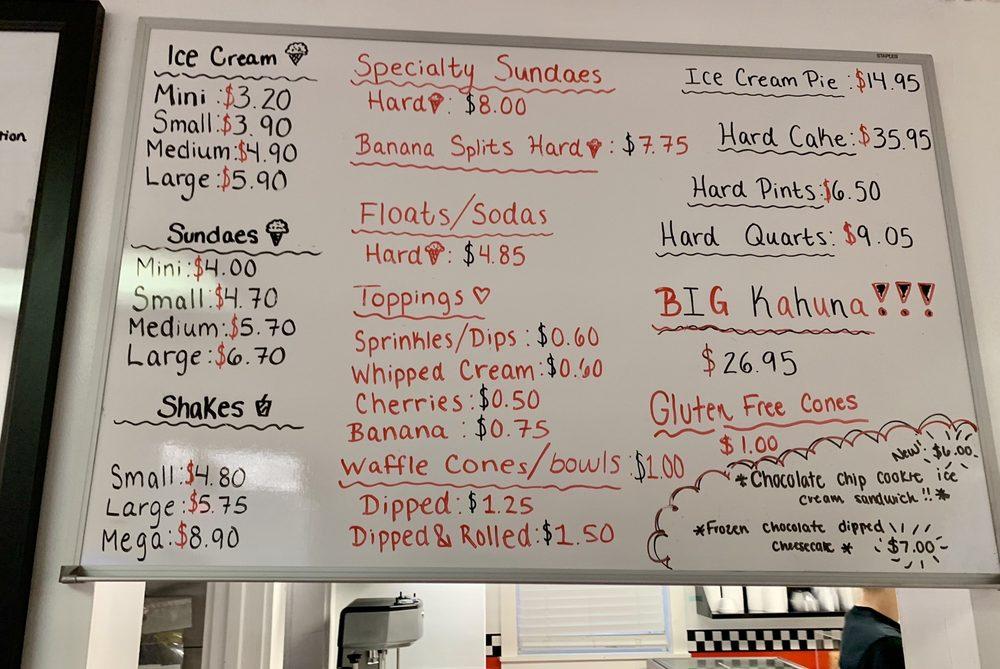 tion
Ice Cream
Mini : $3.20
Small: $3.90
Medium: $4.90
Large: $5.90
Sundaes
Mini: $4.00
Small: $4.70
Medium: $5.70
Large: $6.70
Shakes
Small: $4.80
Large: $5.75
Mega: $8.90
Specialty Sundaes
Hard : $8.00
Banana Splits Hard : $7.75
Floats/Sodas
Hard : $4.85
Toppings ♡
Sprinkles/Dips : $0.60
Whipped Cream: $0.60
Cherries: $0.50
Banana : $0.75
Waffle Cones/bowls : $1.00
Dipped: $1.25
Dipped & Rolled: $1.50
STAPLES
Ice Cream Pie : $14.95
Hard Cake: $35.95
Hard Pints: $6.50
Hard Quarts: $9.05
BIG Kahuna!!!
$26.95
Gluten Free Cones
$1.00
New: $6.00
*Chocolate chip cookie ice
cream sandwich!!*
*Frozen chocolate dipped
cheesecake * $7.00